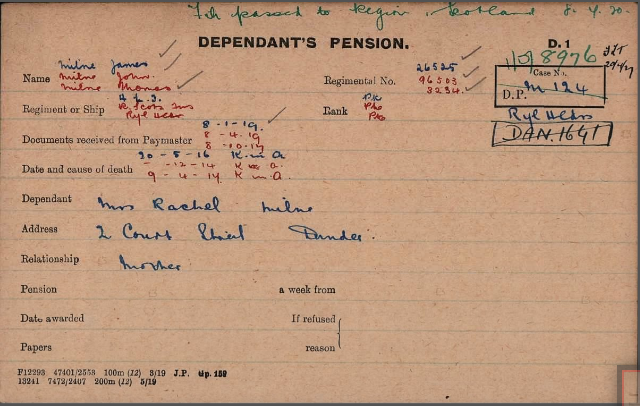 passed to Region, Scotland 8.4.20.
DEPENDANT'S PENSION.
D. 1
1/0/8976
Name Milne James
Milne John.
Milne Thomas
Regimental No. 26525
96503
3234.
Case No.
D.P. M 124
Regiment or Ship H.L.I.
R. Scots Fus
Ryl Hdrs
Rank Pte
Pte
Pte
Ryl Hdrs
DAN.1641
Documents received from Paymaster 8-1-19.
8-4-19
8-10-17
Date and cause of death 20-5-16 K in A
-12-14 K in A.
9-4-17 K in A.
Dependant Mrs Rachel Milne
Address 2 Court Street Dundee.
Relationship Mother
Pension a week from
Date awarded If refused
Papers reason
F12293 47401/2553 100m (12) 3/19 J.P. Gp. 152
13241 7472/2407 200m (12) 5/19